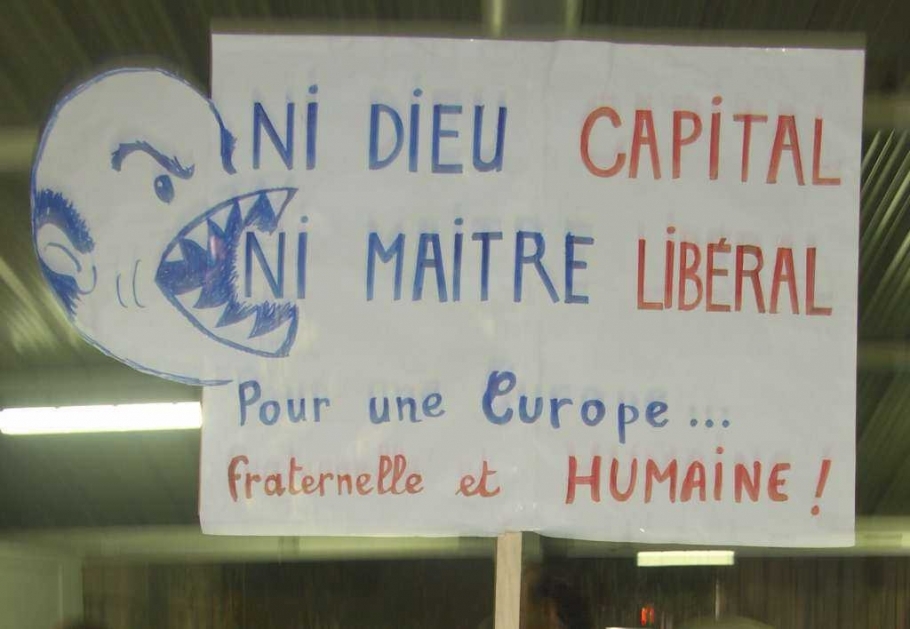 Ni DiEU CAPiTAL
Ni MAiTRE LiBÉRAL
Pour une Europe...
fraternelle et HUMAiNE !